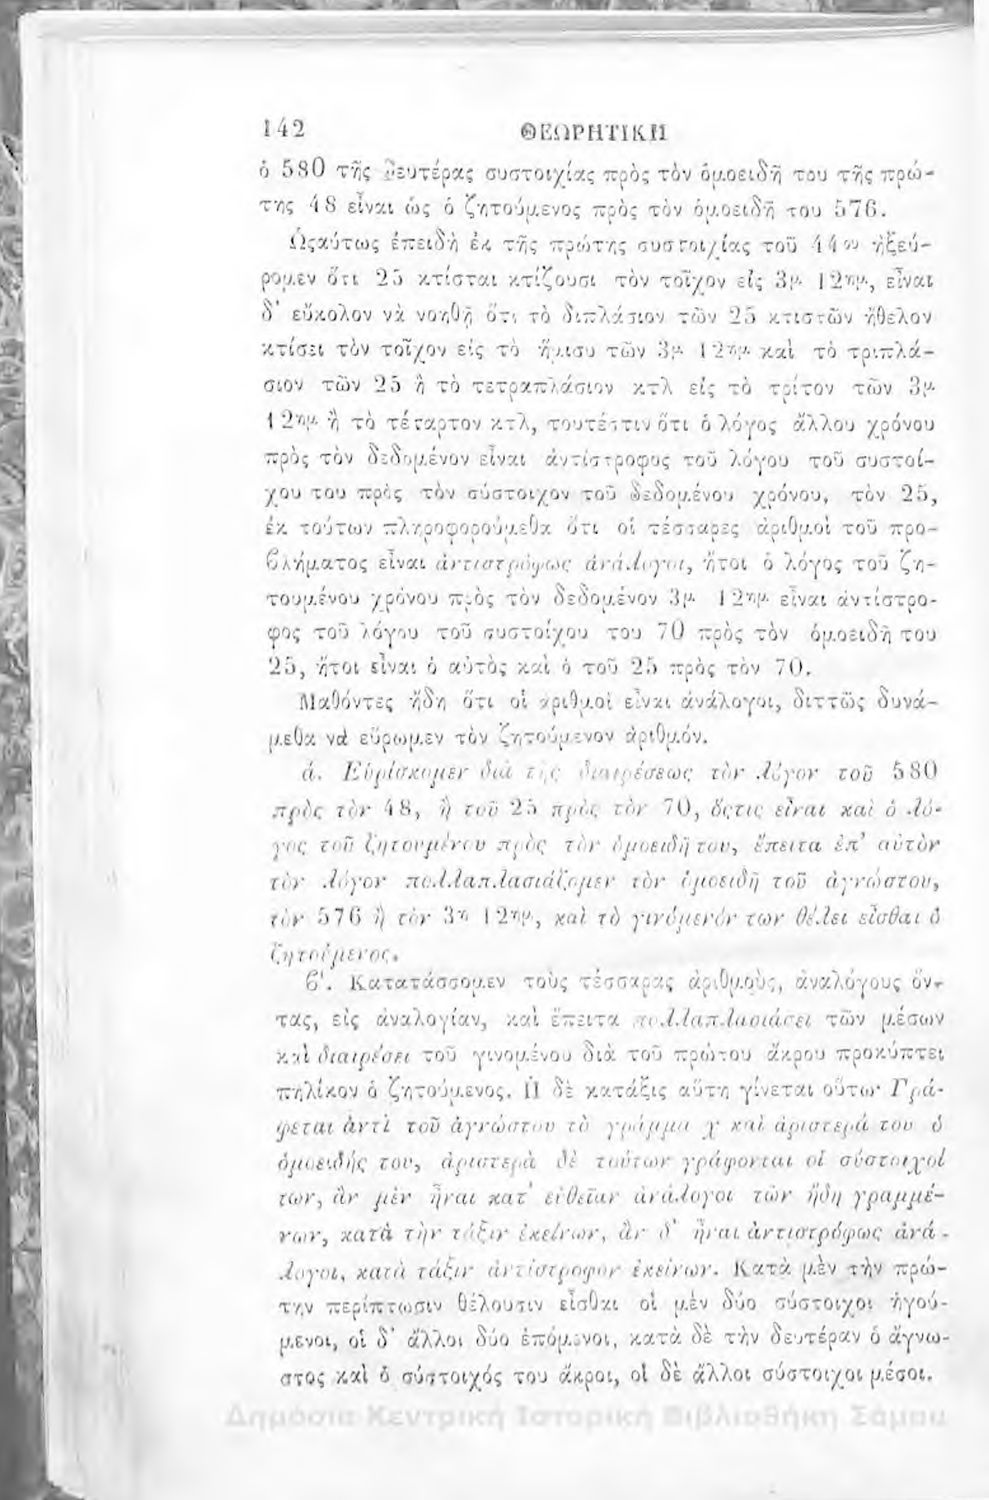 142 ΘΕΩΡΗΤΙΚΗ
ὁ 580 τῆς δευτέρας συστοιχίας πρὸς τὸν ὁμοειδῆ του τῆς πρώ-
της 48 εἶναι ὡς ὁ ζητούμενος πρὸς τὸν ὁμοειδῆ του 576.
Ὡςαύτως ἐπειδὴ ἐκ τῆς πρώτης συστοιχίας τοῦ 44ου ἠξεύ-
ρομεν ὅτι 25 κτίσται κτίζουσι τὸν τοῖχον εἰς 3μ. 12ημ., εἶναι
δ' εὔκολον νὰ νοηθῇ ὅτι τὸ διπλάσιον τῶν 25 κτιστῶν ἤθελον
κτίσει τὸν τοῖχον εἰς τὸ ἥμισυ τῶν 3μ. 12ημ. καὶ τὸ τριπλά-
σιον τῶν 25 ἢ τὸ τετραπλάσιον κτλ εἰς τὸ τρίτον τῶν 3μ.
12ημ. ἢ τὸ τέταρτον κτλ, τουτέστιν ὅτι ὁ λόγος ἄλλου χρόνου
πρὸς τὸν δεδομένον εἶναι ἀντίστροφος τοῦ λόγου τοῦ συστοί-
χου του πρὸς τὸν σύστοιχον τοῦ δεδομένου χρόνου, τὸν 25,
ἐκ τούτων πληροφορούμεθα ὅτι οἱ τέσσαρες ἀριθμοὶ τοῦ προ-
βλήματος εἶναι ἀντιστρόφως ἀνάλογοι, ἤτοι ὁ λόγος τοῦ ζη-
τουμένου χρόνου πρὸς τὸν δεδομένον 3μ. 12ημ. εἶναι ἀντίστρο-
φος τοῦ λόγου τοῦ συστοίχου του 70 πρὸς τὸν ὁμοειδῆ του
25, ἤτοι εἶναι ὁ αὐτὸς καὶ ὁ τοῦ 25 πρὸς τὸν 70.
Μαθόντες ἤδη ὅτι οἱ ἀριθμοὶ εἶναι ἀνάλογοι, διττῶς δυνά-
μεθα νὰ εὕρωμεν τὸν ζητούμενον ἀριθμόν.
ά. Εὑρίσκομεν διὰ τῆς διαιρέσεως τὸν λόγον τοῦ 580
πρὸς τὸν 48, ἢ τοῦ 25 πρὸς τὸν 70, ὅςτις εἶναι καὶ ὁ λό-
γος τοῦ ζητουμένου πρὸς τὸν ὁμοειδῆ του, ἔπειτα ἐπ' αὐτὸν
τὸν λόγον πολλαπλασιάζομεν τὸν ὁμοειδῆ τοῦ ἀγνώστου,
τὸν 576 ἢ τὸν 3μ. 12ημ, καὶ τὸ γινόμενόν των θέλει εἶσθαι ὁ
ζητούμενος.
β'. Κατατάσσομεν τοὺς τέσσαρας ἀριθμοὺς, ἀναλόγους ὄν-
τας, εἰς ἀναλογίαν, καὶ ἔπειτα πολλαπλασιάσει τῶν μέσων
καὶ διαιρέσει τοῦ γινομένου διὰ τοῦ πρώτου ἄκρου προκύπτει
πηλίκον ὁ ζητούμενος. Ἡ δὲ κατάξις αὕτη γίνεται οὕτω· Γρά-
φεται ἀντὶ τοῦ ἀγνώστου τὸ γράμμα χ καὶ ἀριστερά του ὁ
ὁμοειδής του, ἀριστερὰ δὲ τούτων γράφονται οἱ σύστοιχοί
των, ἂν μὲν ἦναι κατ' εὐθεῖαν ἀνάλογοι τῶν ἤδη γραμμέ-
νων, κατὰ τὴν τάξιν ἐκείνων, ἂν δ' ἦναι ἀντιστρόφως ἀνά-
λογοι, κατὰ τάξιν ἀντίστροφον ἐκείνων. Κατὰ μὲν τὴν πρώ-
την περίπτωσιν θέλουσιν εἶσθαι οἱ μὲν δύο σύστοιχοι ἡγού-
μενοι, οἱ δ' ἄλλοι δύο ἑπόμενοι, κατὰ δὲ τὴν δευτέραν ὁ ἄγνω-
στος καὶ ὁ σύστοιχός του ἄκροι, οἱ δὲ ἄλλοι σύστοιχοι μέσοι.
Δημόσια Κεντρική Ιστορική Βιβλιοθήκη Σάμου